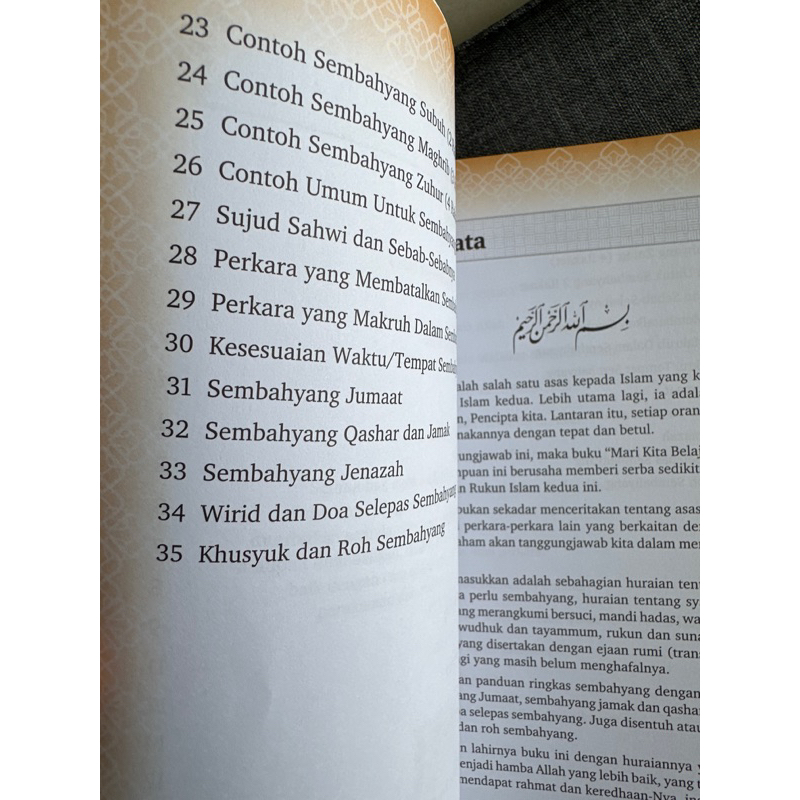 23 Contoh Sembahyang Subuh (2
24 Contoh Sembahyang Maghrib (3
25 Contoh Sembahyang Zuhur (4
26 Contoh Umum Untuk Sembahyang
27 Sujud Sahwi dan Sebab-Sebabnya
28 Perkara yang Membatalkan
29 Perkara yang Makruh Dalam
30 Kesesuaian Waktu/Tempat
31 Sembahyang Jumaat
32 Sembahyang Qashar dan Jamak
33 Sembahyang Jenazah
34 Wirid dan Doa Selepas Sembahyang
35 Khusyuk dan Roh Sembahyang
ata
بسم الله الرحمن الرحيم
alah salah satu asas kepada Islam yang k
Islam kedua. Lebih utama lagi, ia adal
n, Pencipta kita. Lantaran itu, setiap oran
nakannya dengan tepat dan betul.
ungjawab ini, maka buku “Mari Kita Belaj
mpuan ini berusaha memberi serba sedikit
n Rukun Islam kedua ini.
bukan sekadar menceritakan tentang asas
i perkara-perkara lain yang berkaitan de
aham akan tanggungjawab kita dalam me
masukkan adalah sebahagian huraian ten
a perlu sembahyang, huraian tentang sy
ang merangkumi bersuci, mandi hadas, wa
wudhuk dan tayammum, rukun dan suna
yang disertakan dengan ejaan rumi (tran
gi yang masih belum menghafalnya.
an panduan ringkas sembahyang dengan
ang Jumaat, sembahyang jamak dan qasha
a selepas sembahyang. Juga disentuh atau
dan roh sembahyang.
n lahirnya buku ini dengan huraiannya y
enjadi hamba Allah yang lebih baik, yang t
mendapat rahmat dan keredhaan-Nya,